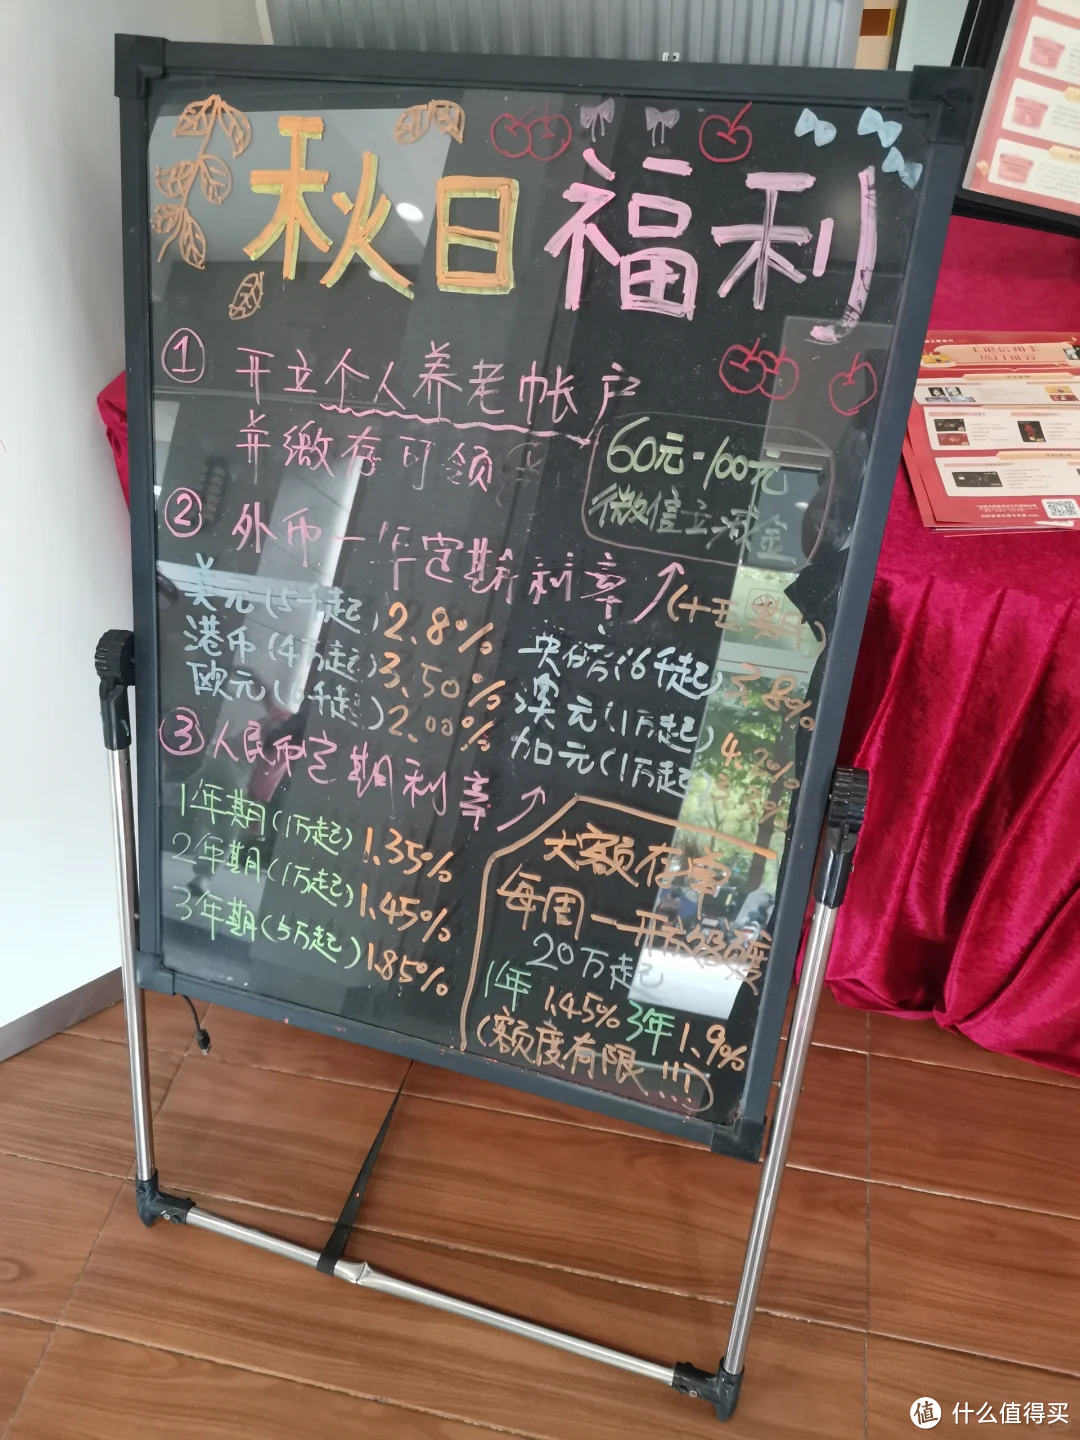 秋日福利
① 开立个人养老帐户
并缴存可领
60元-100元
微信立减金
② 外币一年定期利率
美元(5千起)2.8%
港币(4万起)3.50%
欧元(6千起)2.00%
英镑(6千起)3.8%
澳元(1万起)
加元(1万起)
③ 人民币定期利率
1年期(1万起)1.35%
2年期(1万起)1.45%
3年期(5万起)1.85%
大额存单
每周一开放额度
20万起
1年 1.45% 3年 1.9%
(额度有限!!!)
值 什么值得买